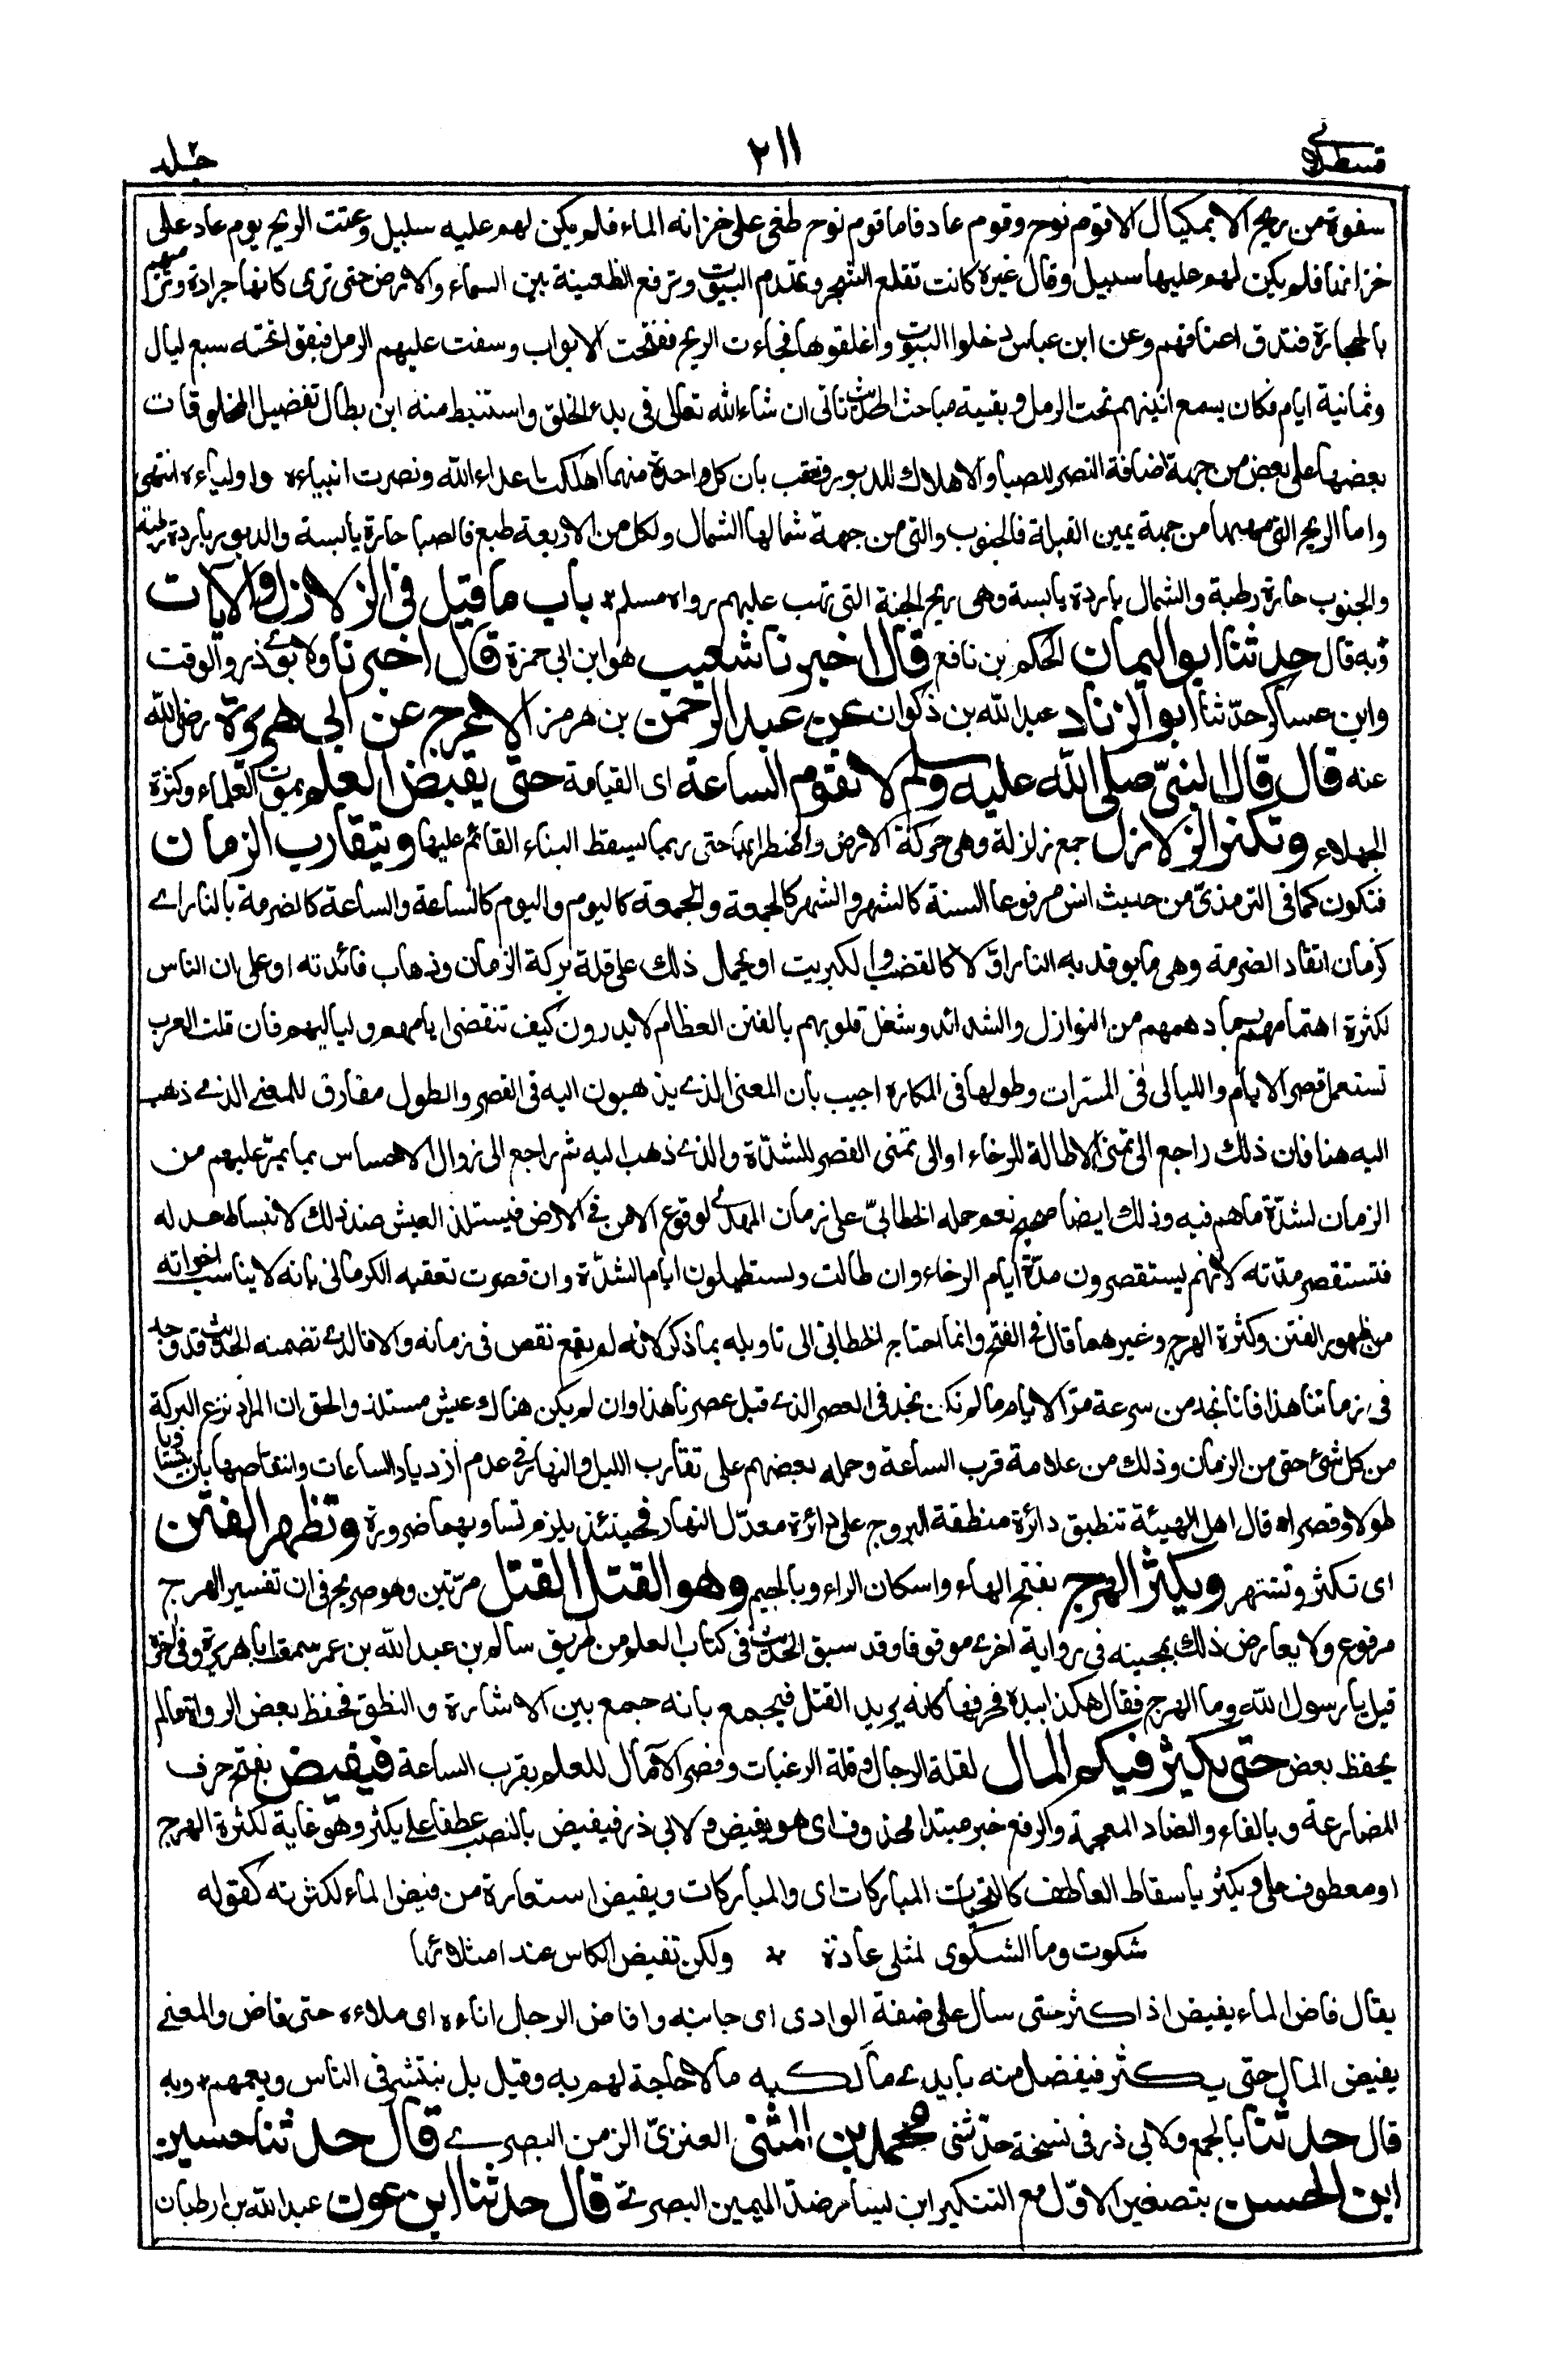 قسطلانی ٢١١ جلد
سفوة من ريح الا بمكيال الا قوم نوح وقوم عاد فاما قوم نوح طغى على خزانه الماء فلم يكن لهم عليه سلبيل وعتت الريح يوم عاد على
خزانها فلم يكن لهم عليها سبيل وقال غيره كانت تقلع الشجر وتهدم البيوت وترفع الظعينة بين السماء والارض حتى ترى كانها جرادة وترميهم
بالحجارة فتدق اعناقهم وعن ابن عباس دخلوا البيوت واغلقوها فجاءت الريح ففتحت الابواب وسفت عليهم الرمل فبقوا تحته سبع ليال
وثمانية ايام فكان يسمع انينهم تحت الرمل وبقية مباحث الحديث تاتى ان شاء الله تعالى فى بدء الخلق واستنبط منه ابن بطال تفضيل المخلوقات
بعضها على بعض من جهة اضافة النصر للصبا والاهلاك للدبور وتعقب بان كل واحدة منهما اهلكت اعداء الله ونصرت انبياءه واولياءه انتهى
واما الريح التى مهبها من جهة يمين القبلة فالجنوب والتى من جهة شمالها الشمال ولكل من الاربعة طبع فالصبا حارة يابسة والدبور باردة رطبة
والجنوب حارة رطبة والشمال باردة يابسة وهى ريح الجنة التى تهب عليهم رواه مسلم * باب ما قيل فى الزلازل والايات
وبه قال حدثنا ابو اليمان الحكم بن نافع قال اخبرنا شعيب هو ابن ابى حمزة قال اخبرنا ولابوى ذر والوقت
وابن عساكر حدّثنا ابو الزناد عبدالله بن ذكوان عن عبد الرحمن بن هرمز الاعرج عن ابى هريرة رضى الله
عنه قال قال النبىّ صلى الله عليه وسلم لا تقوم الساعة اى القيامة حتى يقبض العلم بموت العلماء وكثرة
الجهلاء وتكثر الزلازل جمع زلزلة وهى حركة الارض واضطرابها حتى ربما يسقط البناء القائم عليها ويتقارب الزمان
فتكون كما فى الترمذىّ من حديث انس مرفوعا السنة كالشهر والشهر كالجمعة والجمعة كاليوم واليوم كالساعة والساعة كالضرمة بالنار اى
كزمان اتقاد الضرمة وهى ما يوقد به النار اوّلا كالقضب والكبريت او يحمل ذلك على قلة بركة الزمان وذهاب فائدته او على ان الناس
لكثرة اهتمامهم بما دهمهم من النوازل والشدائد وشغل قلوبهم بالفتن العظام لا يدرون كيف تنقضى ايامهم ولياليهم فان قلت العرب
تستعمل قصر الايام والليالى فى المسّرات وطولها فى المكاره اجيب بان المعنى الذى يذهبون اليه فى القصر والطول مفارق للمعنى الذى ذهب
اليه هنا فان ذلك راجع الى تمنى الاطالة للرخاء او الى تمنى القصر للشدّة والذى ذهب اليه ثم راجع الى زوال الاحساس بما يمرّ عليهم من
الزمان لشدّة ما هم فيه وذلك ايضا صحيح نعم حمله الخطابىّ على زمان المهدى لوقوع الامن فى الارض فيستلذ العيش عند ذلك لانبساط عدله
فتستقصر مدّته لانهم يستقصرون مدّة ايام الرخاء وان طالت ويستطيلون ايام الشدّة وان قصرت تعقبه الكرمانى بانه لا يناسب اخواته
من ظهور الفتن وكثرة الهرج وغيرهما قال فى الفتح وانما احتاج الخطابى الى تاويله بما ذكر لانه لم يقع نقص فى زمانه والا فالذى تضمنه الحديث قد وجد
فى زماننا هذا فانا نجد من سرعة مرّ الايام ما لم نكن نجد فى العصر الذى قبل عصرنا هذا وان لم يكن هناك عيش مستلذ والحق ان المراد نزع البركة
من كل شئ حتى من الزمان وذلك من علامة قرب الساعة وحمله بعضهم على تقارب الليل والنهار فى عدم ازدياد الساعات وانتقاصها بان يستويا
طولا وقصرا قال اهل الهيئة تنطبق دائرة منطقة البروج على دائرة معدّل النهار فحينئذ يلزم تساويهما ضرورة وتظهر الفتن
اى تكثر وتشتهر ويكثر الهرج بفتح الهاء واسكان الراء وبالجيم وهو القتل القتل مرّتين وهو صريح فى ان تفسير الهرج
مرفوع ولا يعارض ذلك بمجيئه فى رواية اخرى موقوفا وقد سبق الحديث فى كتاب العلم من طريق سالم بن عبدالله بن عمر سمعت اباهريرة وفى اخره
قيل يا رسول الله وما الهرج فقال هكذا بيده فحرفها كانه يريد القتل فيجمع بانه جمع بين الاشارة والنطق فحفظ بعض الرواة ما لم
يحفظ بعض حتى يكثر فيكم المال لقلة الرجال وقلة الرغبات وقصر الآمال للعلم بقرب الساعة فيفيض بفتح حرف
المضارعة وبالفاء والضاد المعجمة والرفع خبر مبتدا محذوف اى هو يفيض ولابى ذر فيفيض بالنصب عطفا على يكثر وهو غاية لكثرة الهرج
او معطوف على ويكثر باسقاط العاطف كالتحيات المباركات اى والمباركات ويفيض استعارة من فيض الماء لكثرته كقوله
شكوت وما الشكوى لمثلى عادة * ولكن تفيض الكاس عند امتلائها
يقال فاض الماء يفيض اذا كثر حتى سال على ضفة الوادى اى جانبه وافاض الرجل اناءه اى ملاءه حتى فاض والمعنى
يفيض المال حتى يكثر فيفضل منه بايدى مالكيه ما لا حاجة لهم به وقيل بل ينتشر فى الناس ويعمهم * وبه
قال حدثنا بالجمع ولابى ذر فى نسخة حدّثنى محمد بن المثنى العنزىّ الزمن البصرى قال حدثنا حسين
ابن الحسن بتصغير الاوّل مع التنكير ابن يسار ضدّ اليمين البصرىّ قال حدثنا ابن عون عبدالله بن ارطبان